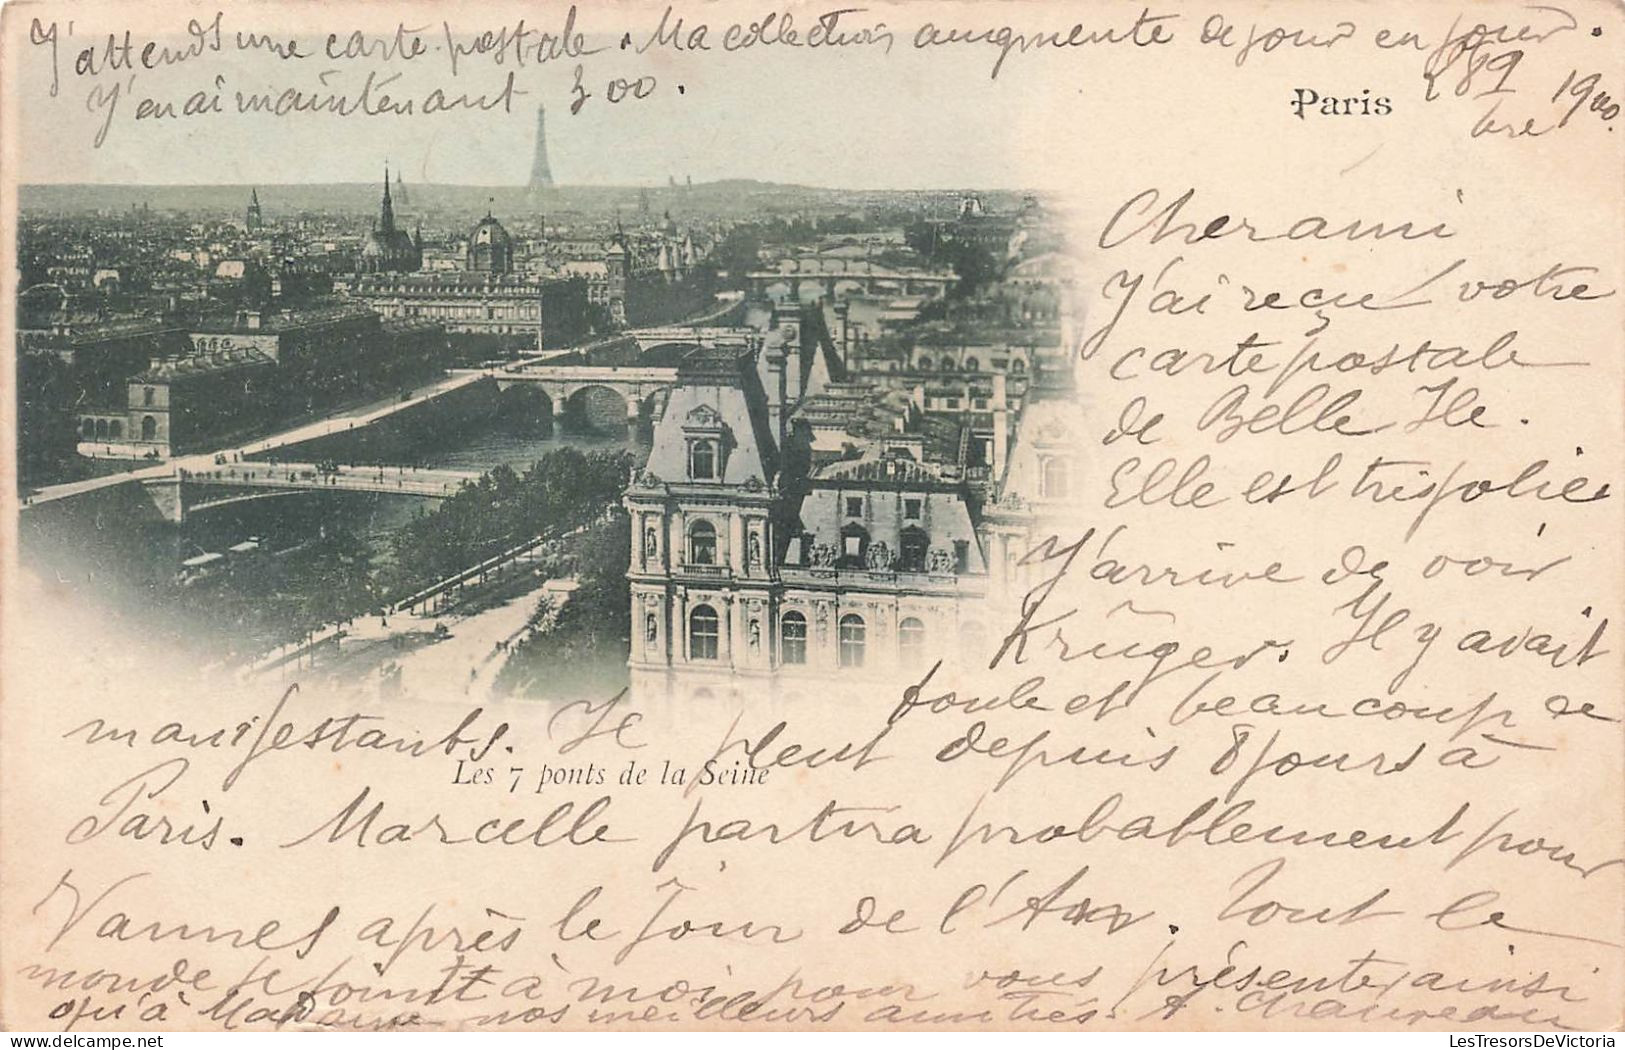 J'attends une carte postale. Ma collection augmente de jour en jour.
J'en ai maintenant 300.
Paris 2 8 9bre 1900.
Cher ami
J'ai reçu votre
carte postale
de Belle Ile.
Elle est très jolie.
J'arrive de voir
Krüger. Il y avait
foule et beaucoup de
manifestants. Il pleut depuis 8 jours à
Les 7 ponts de la Seine
Paris. Marcelle partira probablement pour
Vannes après le Jour de l'An. Tout le
monde se joint à moi pour vous présenter ainsi
qu'à Madame nos meilleurs amitiés. A. Chauveau
LesTresorsDeVictoria.com